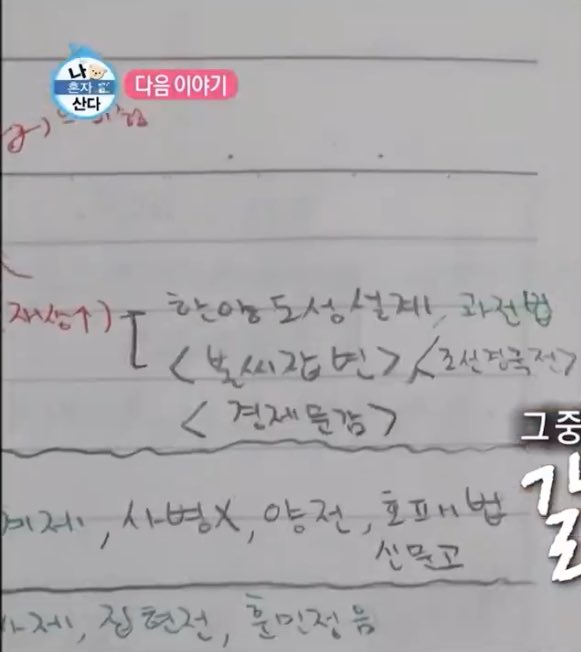 나
혼자
산다
다음 이야기
재상↑)
한양도성설계, 과전법
<불씨잡변>, <조선경국전>
<경제문감>
그중
갈
계제, 사병X, 양전, 호패법
신문고
사제, 집현전, 훈민정음